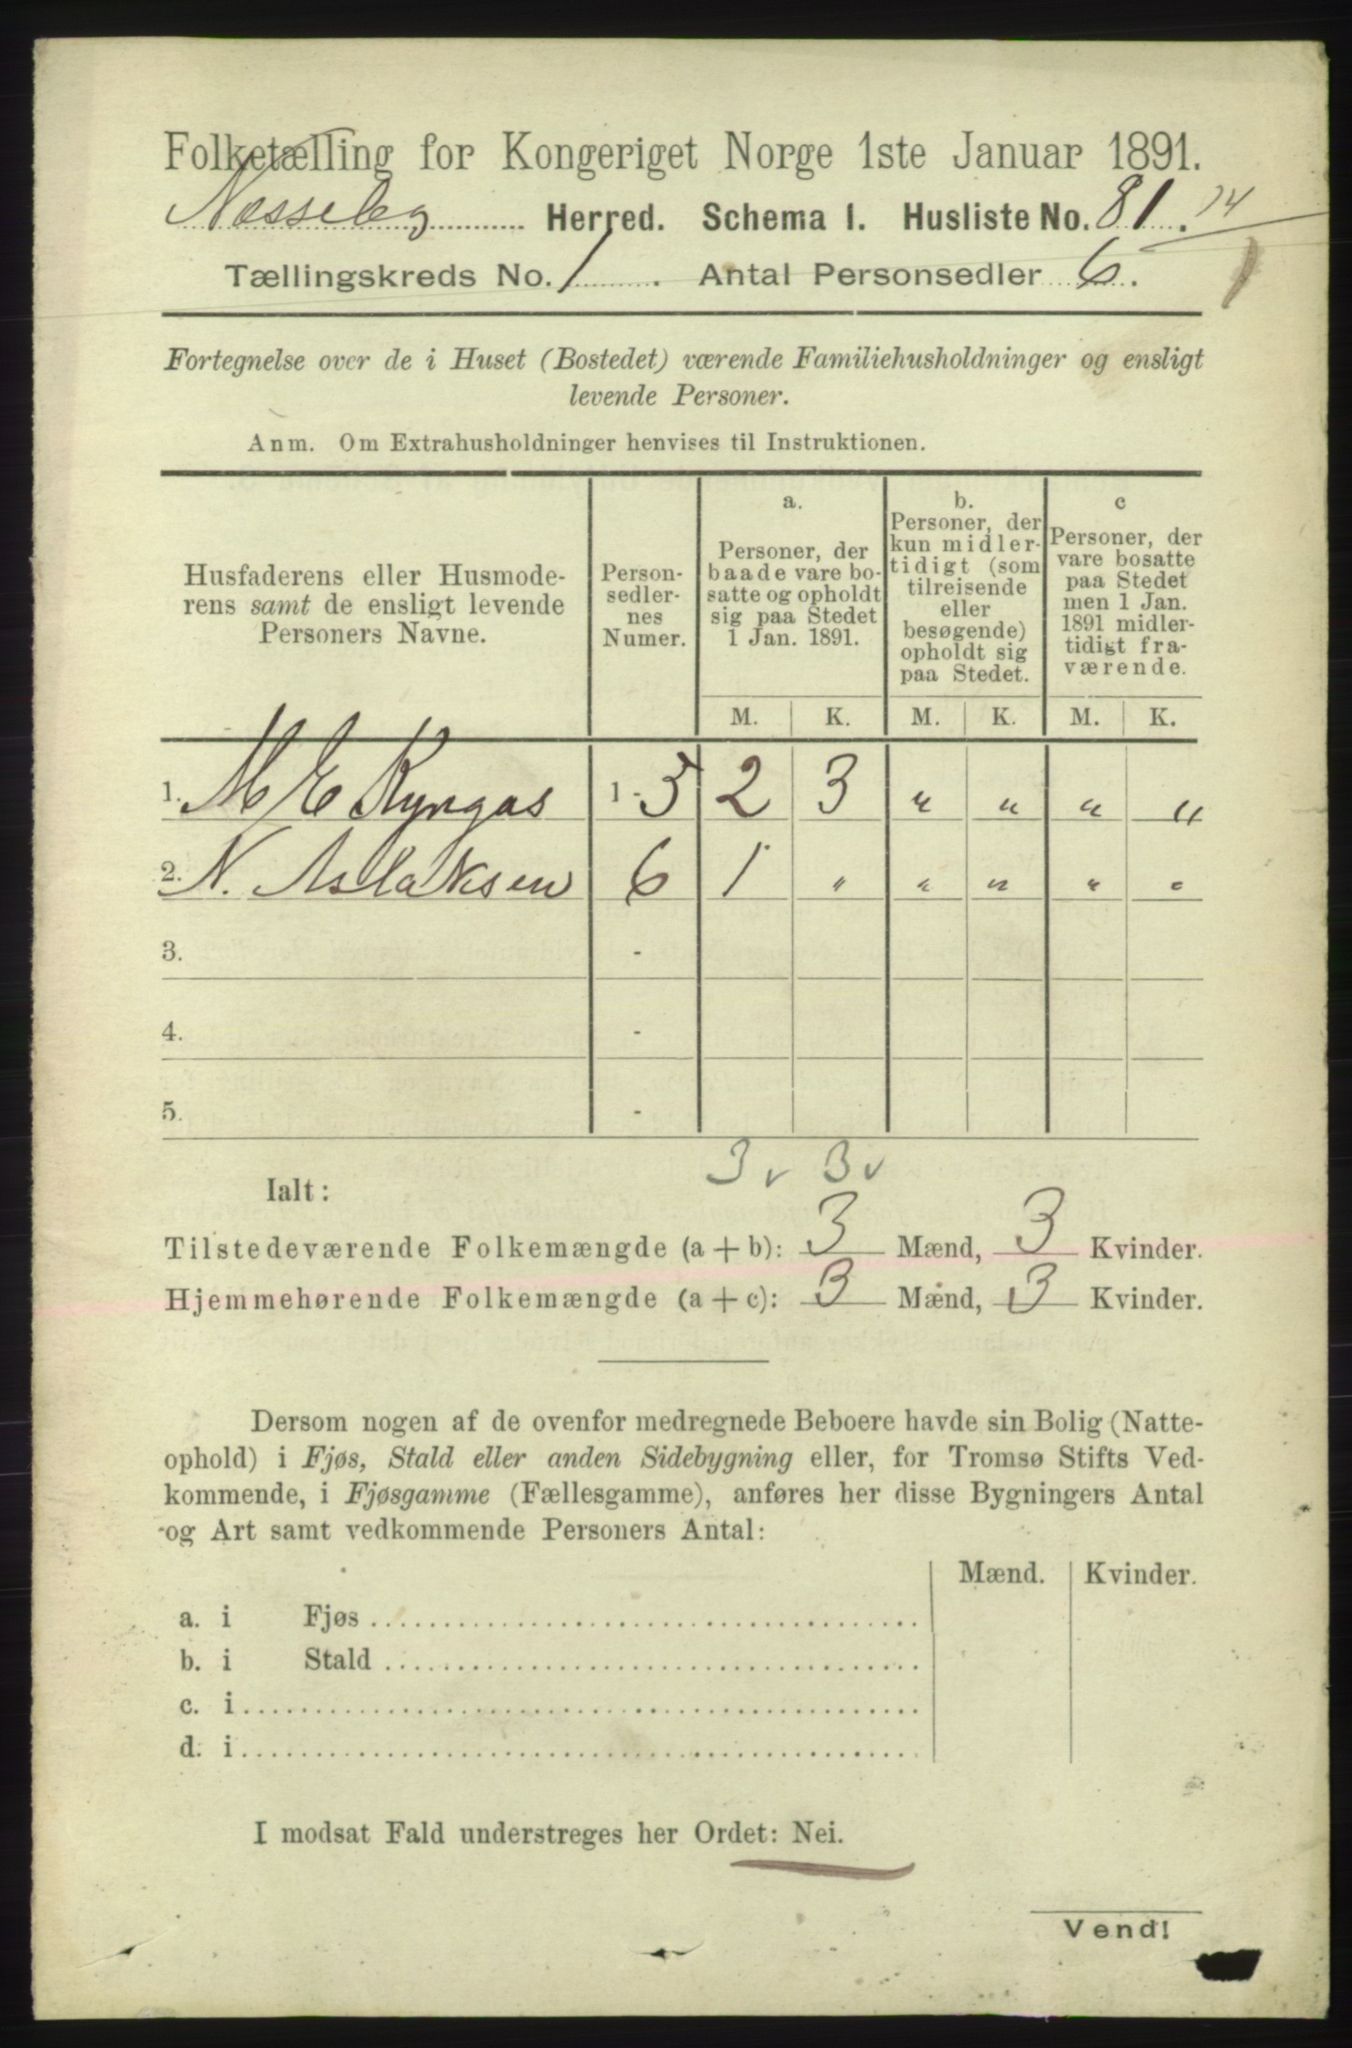 Folketælling for Kongeriget Norge 1ste Januar 1891.
Næsseby Herred. Schema 1. Husliste No. 81. 74
Tællingskreds No. 1. Antal Personsedler 6. 1
Fortegnelse over de i Huset (Bostedet) værende Familiehusholdninger og ensligt
levende Personer.
Anm. Om Extrahusholdninger henvises til Instruktionen.
Husfaderens eller Husmode-
rens samt de ensligt levende
Personers Navne.
Person-
sedler-
nes
Numer.
a.
Personer, der
baade vare bo-
satte og opholdt
sig paa Stedet
1 Jan. 1891.
b.
Personer, der
kun midler-
tidigt (som
tilreisende
eller
besøgende)
opholdt sig
paa Stedet.
c
Personer, der
vare bosatte
paa Stedet
men 1 Jan.
1891 midler-
tidigt fra-
værende.
M. K. M. K. M. K.
1. M E Kyngas 1 - 5 2 3 " " " "
2. N. Aslaksen 6 1 " " " " "
3. -
4. -
5. -
3 v 3 v
Ialt:
Tilstedeværende Folkemængde (a + b): 3 Mænd, 3 Kvinder.
Hjemmehørende Folkemængde (a + c): 3 Mænd, 3 Kvinder.
Dersom nogen af de ovenfor medregnede Beboere havde sin Bolig (Natte-
ophold) i Fjøs, Stald eller anden Sidebygning eller, for Tromsø Stifts Ved-
kommende, i Fjøsgamme (Fællesgamme), anføres her disse Bygningers Antal
og Art samt vedkommende Personers Antal:
Mænd. Kvinder.
a. i Fjøs
b. i Stald
c. i
d. i
I modsat Fald understreges her Ordet: Nei.
Vend!